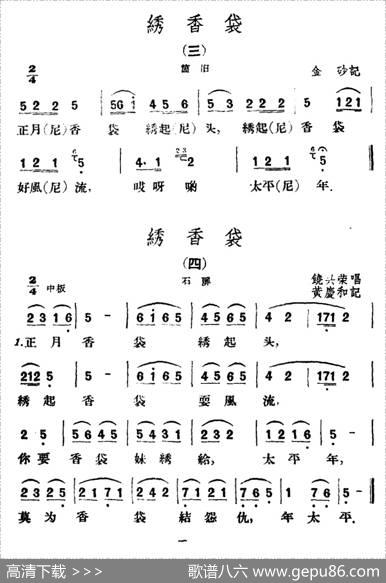 綉香袋
(三)
2/4 箇旧 金砂記
5 2 2 5 | 5 6 1 | 4 5 6 | 5 3 | 2 2 2 2 | 5 | 1 2 1
正月(尼)香 袋 綉起(尼)头, 綉起(尼)香 袋
1 2 1 | 5 | 4· 1 | 2 2 | 1 2 1 2 1 | 5
好風(尼)流, 哎呀喲 太平(尼)年.
綉香袋
(四)
2/4 中板 石屏 饒共荣唱
黃慶和記
2 3 1 6 | 5 - | 6 1 6 5 | 4 5 6 5 | 4 2 | 1 7 1 2
1.正月香 袋 綉起头,
2 1 2 5 | 5 - | 6 1 6 5 | 4 5 6 5 | 4 2 | 1 7 1 2
綉起香 袋 耍風流.
2 5 | 5 6 4 5 | 5 4 3 1 | 2 3 2 1 | 7 6 5 6 | 5 -
你要香袋妹綉給, 太平年,
2 3 2 5 | 2 1 7 1 | 7 2 7 6 | 5 6 1 2 | 7 6 5 | 1 7 6 5
莫为香 袋結怨仇, 年太平.
一
高清下载 >>> 歌谱八六 www.gepu86.com